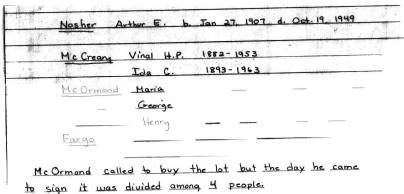 Nosher Arthur E. b. Jan 27, 1907 d. Oct. 19, 1949
McCreany Vinal H.P. 1882-1953
Ida C. 1893-1963
McOrmond Maria
George
Henry
Fargo
McOrmond called to buy the lot but the day he came
to sign it was divided among 4 people.